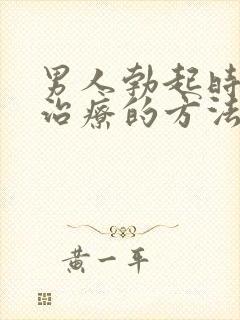 男人勃起时
治疗的方法
黄一平